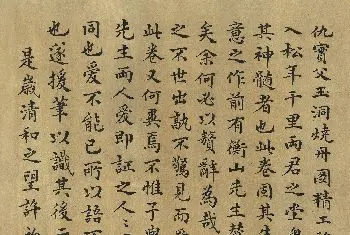 仇實父玉洞燒丹圖精工
入松年千里兩君之堂
其神髓者也此卷固其生
意之作前有衡山先生
矣余何必以贅辭為哉
之不世出孰不驚見而
此卷又何異焉不惟子
先生兩人愛即証之人之
同也愛不能已所以語
也遂援筆以識其後
是歲清和之望許